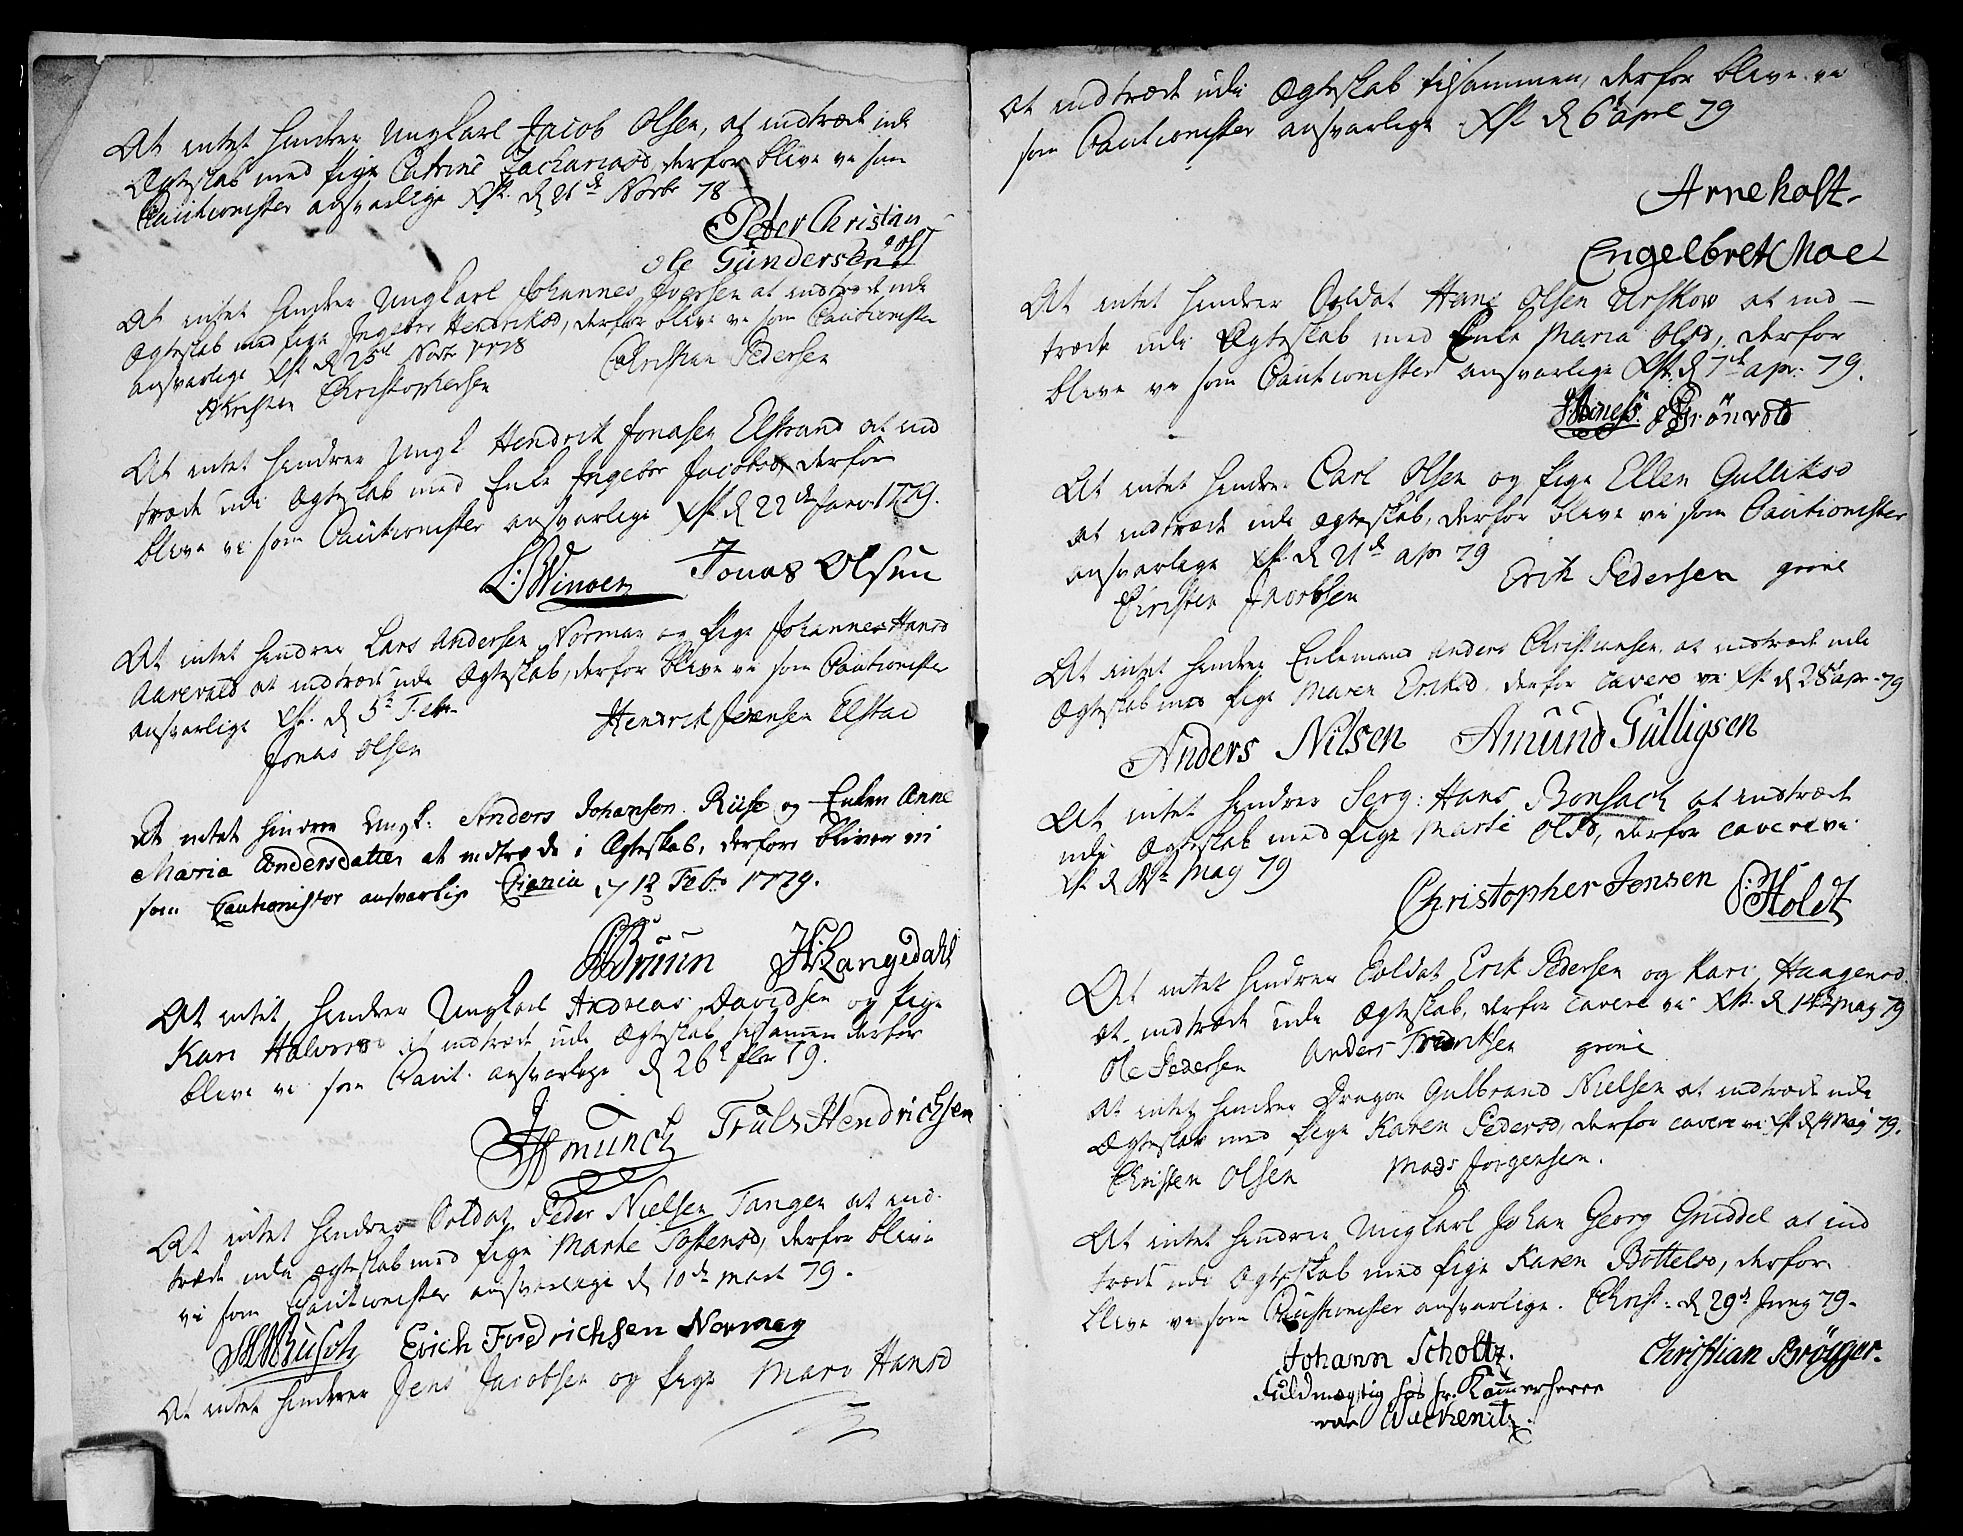 At intet hindrer Ungkarl Jacob Olsen, at indtræde udi
Ægteskab med Pige Catrine Zachariasd, derfor blive vi som
Cautionister ansvarlige Xst. d 21de Novbr 78
Peter Christian
Ole Gundersen
At intet hindrer Ungkarl Johannes Iversen at indtræde udi
Ægteskab med Pige Ingebor Hendriksd, derfor blive vi som Cautionister
ansvarlige Xst. d 25de Novbr 1778
Christian Pedersen
Christophersen
At intet hindrer Ungk Hendrik Jonasen Elstrand at ind
træde udi Ægteskab med Enke Ingebor Jacobsd, derfor
blive vi som Cautionister ansvarlige Xst. d 22de Janv. 1779.
Jonas Olsen
At intet hindrer Lars Andersen Norman og Pige Johannes Hansd
Aarevald at indtræde udi Ægteskab, derfor blive vi som Cautionister
ansvarlige Xst. d 5t Febr.
Hendrich Jensen Elstad
Jonas Olsen
At intet hindrer Ungk: Anders Johansen Riise og Enken Anne
Maria Andersdatter at indtræde i Ægteskab, derfore bliver vi
som Cautionister ansvarlig Christiania 12 Febr 1779.
Bruun H: Langedahl
At intet hindrer Ungkarl Andreas Davidsen og Pige
Kari Halvorsd at indtræde udi Ægteskab tilsamen derfor
blive vi som Caut. ansvarlige d 26t Fbr 79.
Munch Truls Hendrichsen
At intet hindrer Soldat Peder Nielsen Tangen at ind
træde udi Ægteskab med Pige Marte Tostensd, derfor blive
vi som Cautionister ansvarlige d 10de Mart 79.
MBusch Erich Fredrichsen Normay
At intet hindrer Jens Jacobsen og Pige Mari Hansd
at indtræde udi Ægteskab tilsammen, derfor blive vi
som Cautionister ansvarlige Xst d 6t Apl 79
Arne holt
Engelbret Moe
At intet hindrer Soldat Hans Olsen Urskov at ind
træde udi Ægteskab med Enke Maria Olsd, derfor
blive vi som Cautionister ansvarlige Xst. d 7de apr. 79.
Grönvold
At intet hindrer Carl Olsen og Pige Ellen Gulliksd
at indtræde udi Ægteskab, derfor blive vi som Cautionister
ansvarlige Xst. d 21de apr 79
Erik Pedersen
Christen Jacobsen
At intet hindrer Enkemand Anders Christiansen, at indtræde udi
Ægteskab med Pige Maren Eriksd. derfor cavere vi Xst. d 28de apr. 79
Anders Nilsen Amund Gulligsen
At intet hindrer Serg: Hans Bonsach at indtræde
udi Ægteskab med Pige Marte Olsd, derfor cavere vi
Xst d May 79
Christopher Jensen Holdt
At intet hindrer Soldat Erik Pedersen og Kari Haagensd.
at indtræde udi Ægteskab, derfor cavere vi Xst. d 14de May 79
Ole Pedersen Anders Frantsen
At intet hindrer Dragon Gulbrand Nielsen at indtræde udi
Ægteskab med Pige Karen Pedersd, derfor cavere vi Xst d 14 May 79.
Christen Olsen Mads Jørgensen.
At intet hindrer Ungkarl Johan Georg Gruddel at ind
træde udi Ægteskab med Pige Karen Bottelsd, derfor
blive vi som Cautionister ansvarlige. Christ. d 29de Juny 79.
Johann Scholtz. Christian Brögger.
Fuldmægtig hos hr. Kammerherre
von Wackenitz.